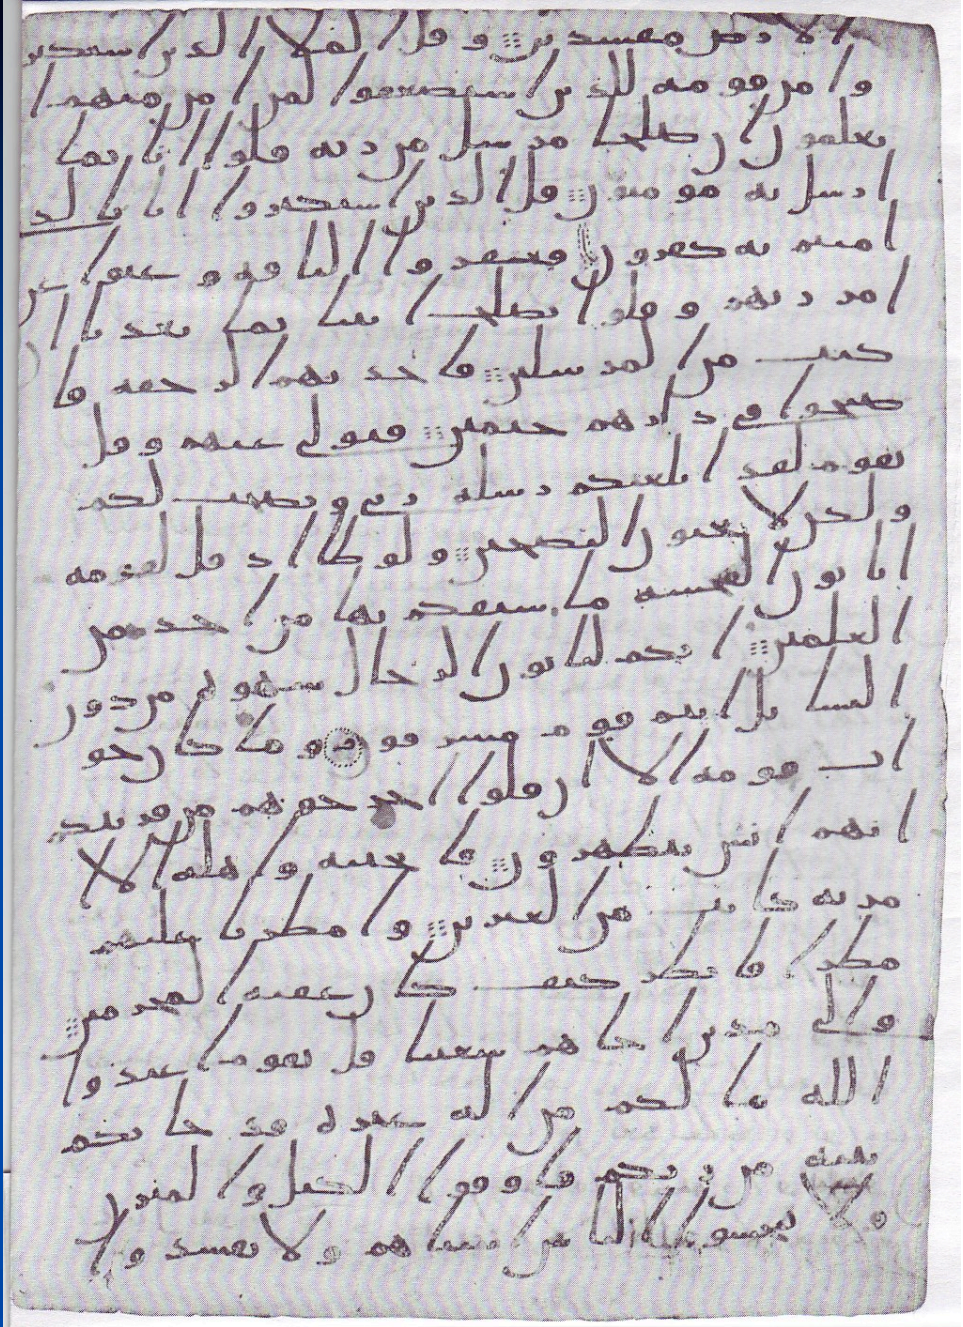 الارض مفسدين وقل الملا الذين استكبر
وا من قومه للذين استضعفوا لمن امن منهم ا
تعلمون ان صلحا مرسل من ربه قلوا انا بما
ارسل به مومنون قل الذين استكبروا انا بالذي
امنتم به كفرون فعقروا الناقه وعتوا عن
امر ربهم وقلوا يصلح ايتنا بما تعدنا ان
كنت من المرسلين فاخذتهم الرجفه فا
صبحوا في دارهم جثمين فتولى عنهم وقل
يقوم لقد ابلغتكم رسله ربي ونصحت لكم
ولكن لا تحبون النصحين ولوطا اذ قل لقومه
اتاتون الفحشه ما سبقكم بها من احد من
العلمين انكم لتاتون الرجال شهوه من دون
النسا بل انتم قوم مسرفون وما كان جو
اب قومه الا ان قلوا اخرجوهم من قريتكم
انهم انس يتطهرون فانجينه واهله الا
امرته كانت من الغبرين وامطرنا عليهم
مطرا فانظر كيف كان عقبه المجرمين
والى مدين اخاهم شعيبا قل يقوم اعبدوا
الله ما لكم من اله غيره قد جاتكم
بينه من ربكم فاوفوا الكيل والميزن
ولا تبخسوا الناس اشياهم ولا تفسدوا